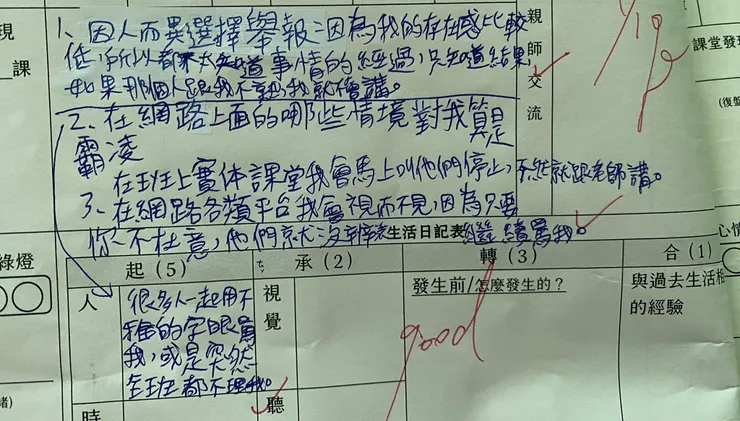 現
課
1、因人而異選擇舉報：因為我的存在感比較
低，所以都不太知道事情的經過，只知道結果
如果那個人跟我不熟，我就不會講。
親師交流
1/10
課堂發現
(復盤
2、在網路上面的哪些情境對我算是
霸凌
在班上實体課堂我會馬上叫他們停止，不然就跟老師講。
3、在網路各類平台我會視而不見，因為只要
你不在意，他們就沒辦法繼續罵我。
生活日記表
心情
綠燈
起(5)
承(2)
轉(3)
合(1)
人
很多人一起用不
雅的字眼罵
我，或是突然
全班都不理我。
視覺
發生前/怎麼發生的？
與過去生活相
的經驗
good
時
聽